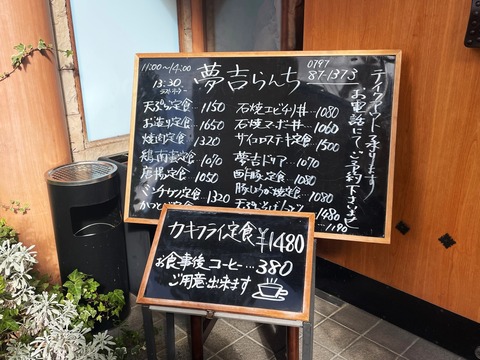 11:00〜14:00
13:30
ラストオーダー
夢吉らんち
0797
87-1373
テイクアウト承ります
お電話にてご予約下さいませ
天ぷら定食…1150
お造り定食…1650
焼肉定食…1320
鶏南蛮定食…1070
唐揚定食…1050
ミンチカツ定食…1320
石焼エビチリ丼…1080
石焼マーボ丼…1060
サイコロステーキ定食…1500
夢吉ドリア…1070
酢豚定食…1080
豚しょうが焼定食…1080
1480
1190
カキフライ定食 ¥1480
お食事後コーヒー…380
ご用意出来ます